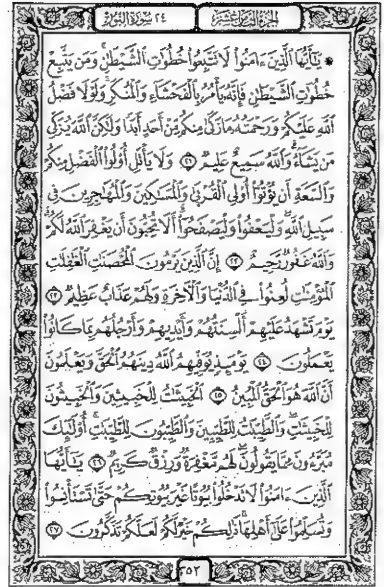 الجزء الثامن عشر ٢٤ سورة النور
۞ يَٰٓأَيُّهَا ٱلَّذِينَ ءَامَنُوا۟ لَا تَتَّبِعُوا۟ خُطُوَٰتِ ٱلشَّيْطَٰنِ ۚ وَمَن يَتَّبِعْ
خُطُوَٰتِ ٱلشَّيْطَٰنِ فَإِنَّهُۥ يَأْمُرُ بِٱلْفَحْشَآءِ وَٱلْمُنكَرِ ۚ وَلَوْلَا فَضْلُ
ٱللَّهِ عَلَيْكُمْ وَرَحْمَتُهُۥ مَا زَكَىٰ مِنكُم مِّنْ أَحَدٍ أَبَدًا وَلَٰكِنَّ ٱللَّهَ يُزَكِّى
مَن يَشَآءُ ۗ وَٱللَّهُ سَمِيعٌ عَلِيمٌ ٢١ وَلَا يَأْتَلِ أُو۟لُوا۟ ٱلْفَضْلِ مِنكُمْ
وَٱلسَّعَةِ أَن يُؤْتُوٓا۟ أُو۟لِى ٱلْقُرْبَىٰ وَٱلْمَسَٰكِينَ وَٱلْمُهَٰجِرِينَ فِى
سَبِيلِ ٱللَّهِ ۖ وَلْيَعْفُوا۟ وَلْيَصْفَحُوٓا۟ ۗ أَلَا تُحِبُّونَ أَن يَغْفِرَ ٱللَّهُ لَكُمْ ۗ
وَٱللَّهُ غَفُورٌ رَّحِيمٌ ٢٢ إِنَّ ٱلَّذِينَ يَرْمُونَ ٱلْمُحْصَنَٰتِ ٱلْغَٰفِلَٰتِ
ٱلْمُؤْمِنَٰتِ لُعِنُوا۟ فِى ٱلدُّنْيَا وَٱلْءَاخِرَةِ وَلَهُمْ عَذَابٌ عَظِيمٌ ٢٣
يَوْمَ تَشْهَدُ عَلَيْهِمْ أَلْسِنَتُهُمْ وَأَيْدِيهِمْ وَأَرْجُلُهُم بِمَا كَانُوا۟
يَعْمَلُونَ ٢٤ يَوْمَئِذٍ يُوَفِّيهِمُ ٱللَّهُ دِينَهُمُ ٱلْحَقَّ وَيَعْلَمُونَ
أَنَّ ٱللَّهَ هُوَ ٱلْحَقُّ ٱلْمُبِينُ ٢٥ ٱلْخَبِيثَٰتُ لِلْخَبِيثِينَ وَٱلْخَبِيثُونَ
لِلْخَبِيثَٰتِ ۖ وَٱلطَّيِّبَٰتُ لِلطَّيِّبِينَ وَٱلطَّيِّبُونَ لِلطَّيِّبَٰتِ ۚ أُو۟لَٰٓئِكَ
مُبَرَّءُونَ مِمَّا يَقُولُونَ ۖ لَهُم مَّغْفِرَةٌ وَرِزْقٌ كَرِيمٌ ٢٦ يَٰٓأَيُّهَا
ٱلَّذِينَ ءَامَنُوا۟ لَا تَدْخُلُوا۟ بُيُوتًا غَيْرَ بُيُوتِكُمْ حَتَّىٰ تَسْتَأْنِسُوا۟
وَتُسَلِّمُوا۟ عَلَىٰٓ أَهْلِهَا ۚ ذَٰلِكُمْ خَيْرٌ لَّكُمْ لَعَلَّكُمْ تَذَكَّرُونَ ٢٧
٣٥٢